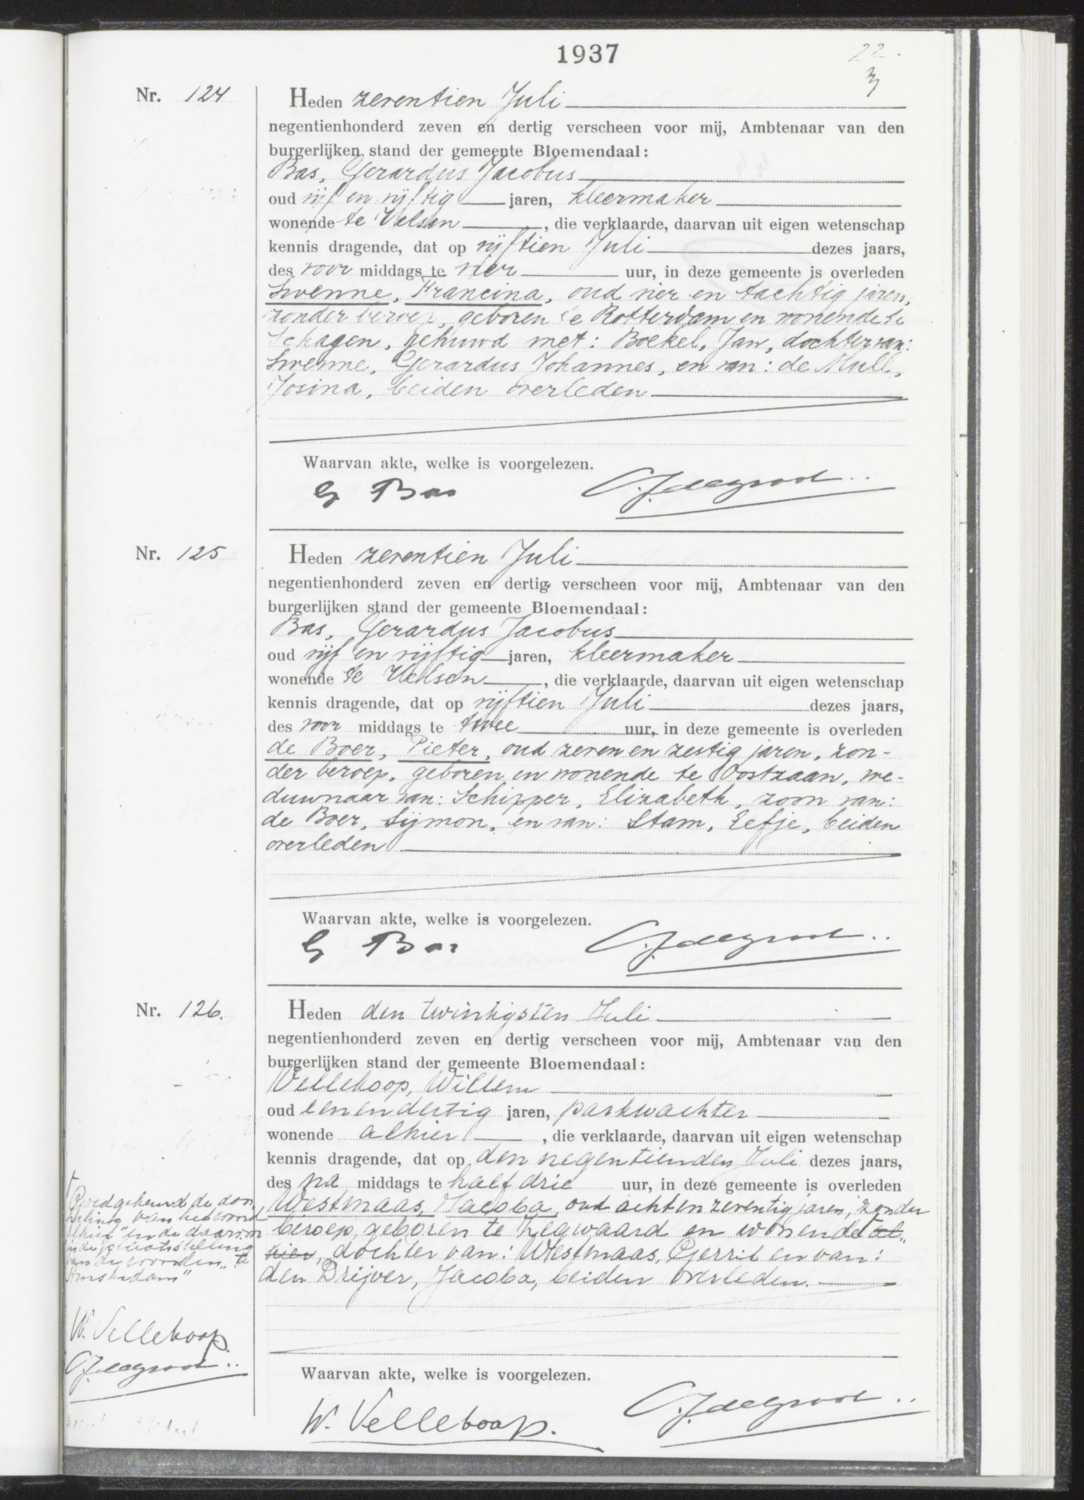 1937
22.
Nr. 124
Heden zeventien Juli
negentienhonderd zeven en dertig verscheen voor mij, Ambtenaar van den
burgerlijken stand der gemeente Bloemendaal:
Bas, Gerardus Jacobus
oud vijf en vijftig jaren, kleermaker
wonende te Velsen, die verklaarde, daarvan uit eigen wetenschap
kennis dragende, dat op vijftien Juli dezes jaars,
des voor middags te vier uur, in deze gemeente is overleden
Swenne, Francina, oud vier en tachtig jaren,
zonder beroep, geboren te Rotterdam en wonende te
Schagen, gehuwd met: Boekel, Jan, dochter van:
Swenne, Gerardus Johannes, en van: de Mull,
Josina, beiden overleden
Waarvan akte, welke is voorgelezen.
G Bas C.J. de Groot
Nr. 125
Heden zeventien Juli
negentienhonderd zeven en dertig verscheen voor mij, Ambtenaar van den
burgerlijken stand der gemeente Bloemendaal:
Bas, Gerardus Jacobus
oud vijf en vijftig jaren, kleermaker
wonende te Velsen, die verklaarde, daarvan uit eigen wetenschap
kennis dragende, dat op vijftien Juli dezes jaars,
des voor middags te twee uur, in deze gemeente is overleden
de Boer, Pieter, oud zeven en zestig jaren, zon-
der beroep, geboren en wonende te Oostzaan, we-
duwnaar van: Schipper, Elizabeth, zoon van:
de Boer, Sijmon, en van: Stam, Eefje, beiden
overleden
Waarvan akte, welke is voorgelezen.
G Bas C.J. de Groot
Nr. 126.
Heden den twintigsten Juli
negentienhonderd zeven en dertig verscheen voor mij, Ambtenaar van den
burgerlijken stand der gemeente Bloemendaal:
Vellekoop, Willem
oud eenendertig jaren, parkwachter
wonende alhier, die verklaarde, daarvan uit eigen wetenschap
kennis dragende, dat op den negentienden Juli dezes jaars,
des na middags te half drie uur, in deze gemeente is overleden
Westmaas, Jacoba, oud achtenzeventig jaren, zonder
beroep, geboren te Zegwaard en wonende al-
hier, dochter van: Westmaas, Gerrit en van:
den Drijver, Jacoba, beiden overleden.
Waarvan akte, welke is voorgelezen.
W. Vellekoop. C.J. de Groot
Goedgekeurd de door
haling van het woord
alhier" en de daarvoor
in de plaatsstelling
van de woorden "te
Amsterdam"
W. Vellekoop.
C.J. de Groot